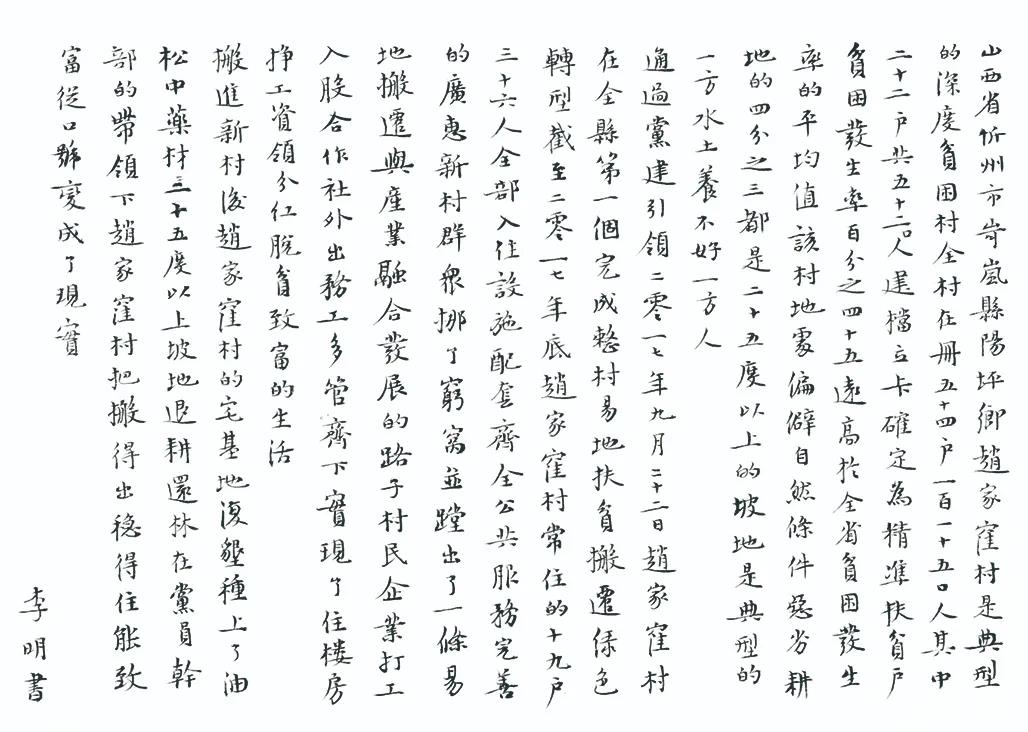 山西省忻州市岢嵐縣陽坪鄉趙家窪村是典型
的深度貧困村全村在冊五十四戶一百一十五口人其中
二十二戶共五十二口人建檔立卡確定為精準扶貧戶
貧困發生率百分之四十五遠高於全省貧困發生
率的平均值該村地處偏僻自然條件惡劣耕
地的四分之三都是二十五度以上的坡地是典型的
一方水土養不好一方人
通過黨建引領二零一七年九月二十二日趙家窪村
在全縣第一個完成整村易地扶貧搬遷綠色
轉型截至二零一七年底趙家窪村常住的十九戶
三十六人全部入住設施配套齊全公共服務完善
的廣惠新村群眾挪了窮窩並蹚出了一條易
地搬遷與産業融合發展的路子村民企業打工
入股合作社外出務工多管齊下實現了住楼房
挣工資領分紅脫貧致富的生活
搬進新村後趙家窪村的宅基地復墾種上了油
松中藥材三十五度以上坡地退耕還林在黨員幹
部的帶領下趙家窪村把搬得出穩得住能致
富從口號變成了現實
李明書